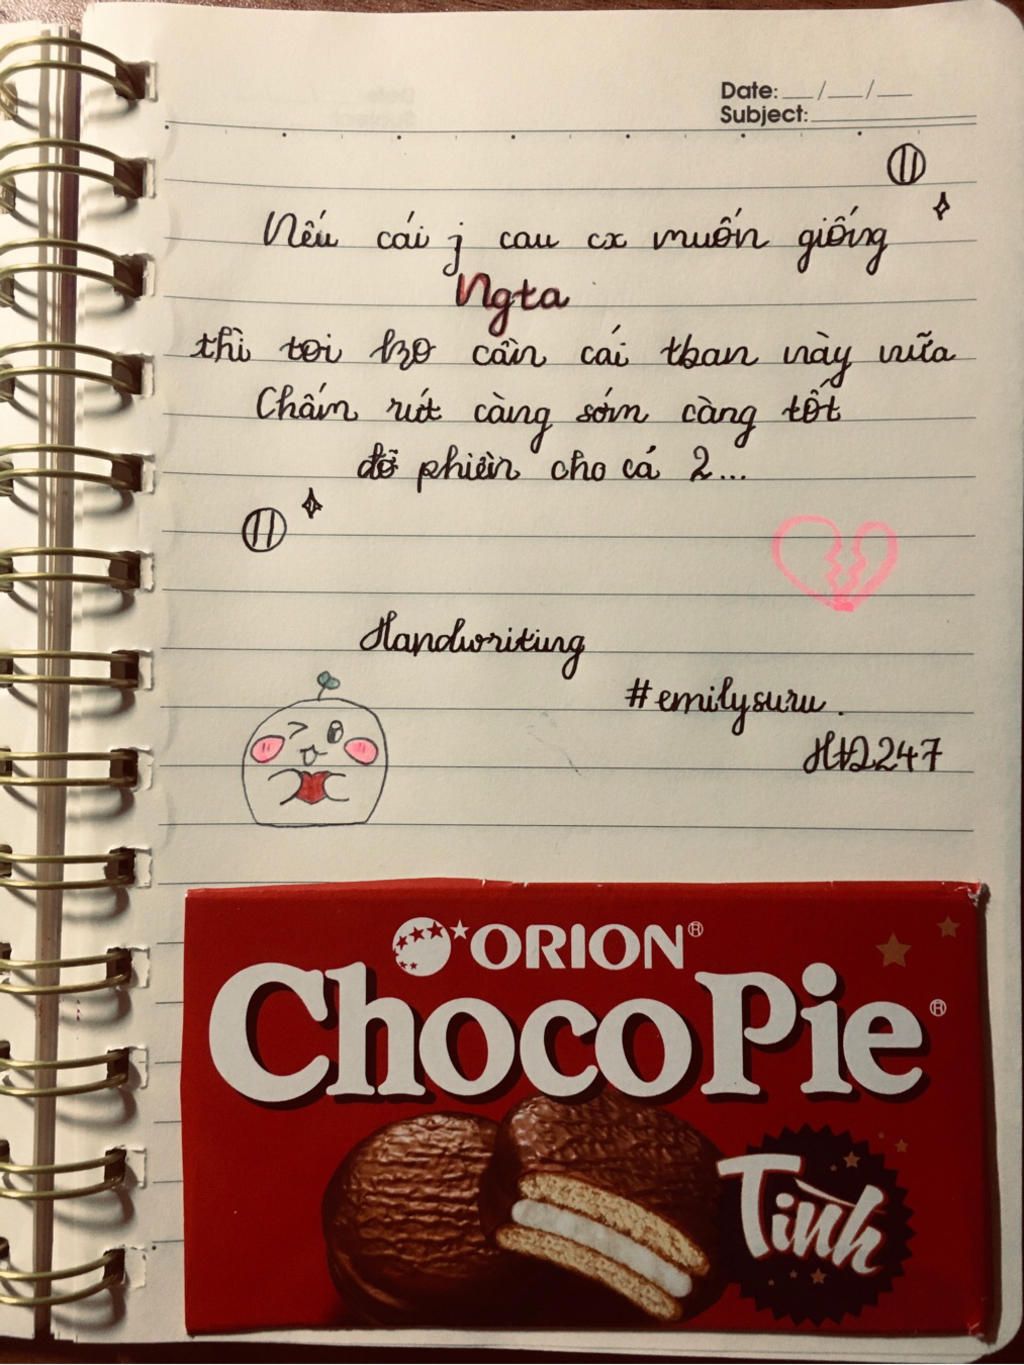 Date: __/__/__
Subject:
Nếu cái j cau cx muốn giống
Ngta
thì toi ko cần cái than này nữa
Chấm rứt càng sớm càng tốt
đỡ phiền cho cả 2...
Handwriting
#emilysuru.
HĐ2247
ORION®
ChocoPie®
Tình